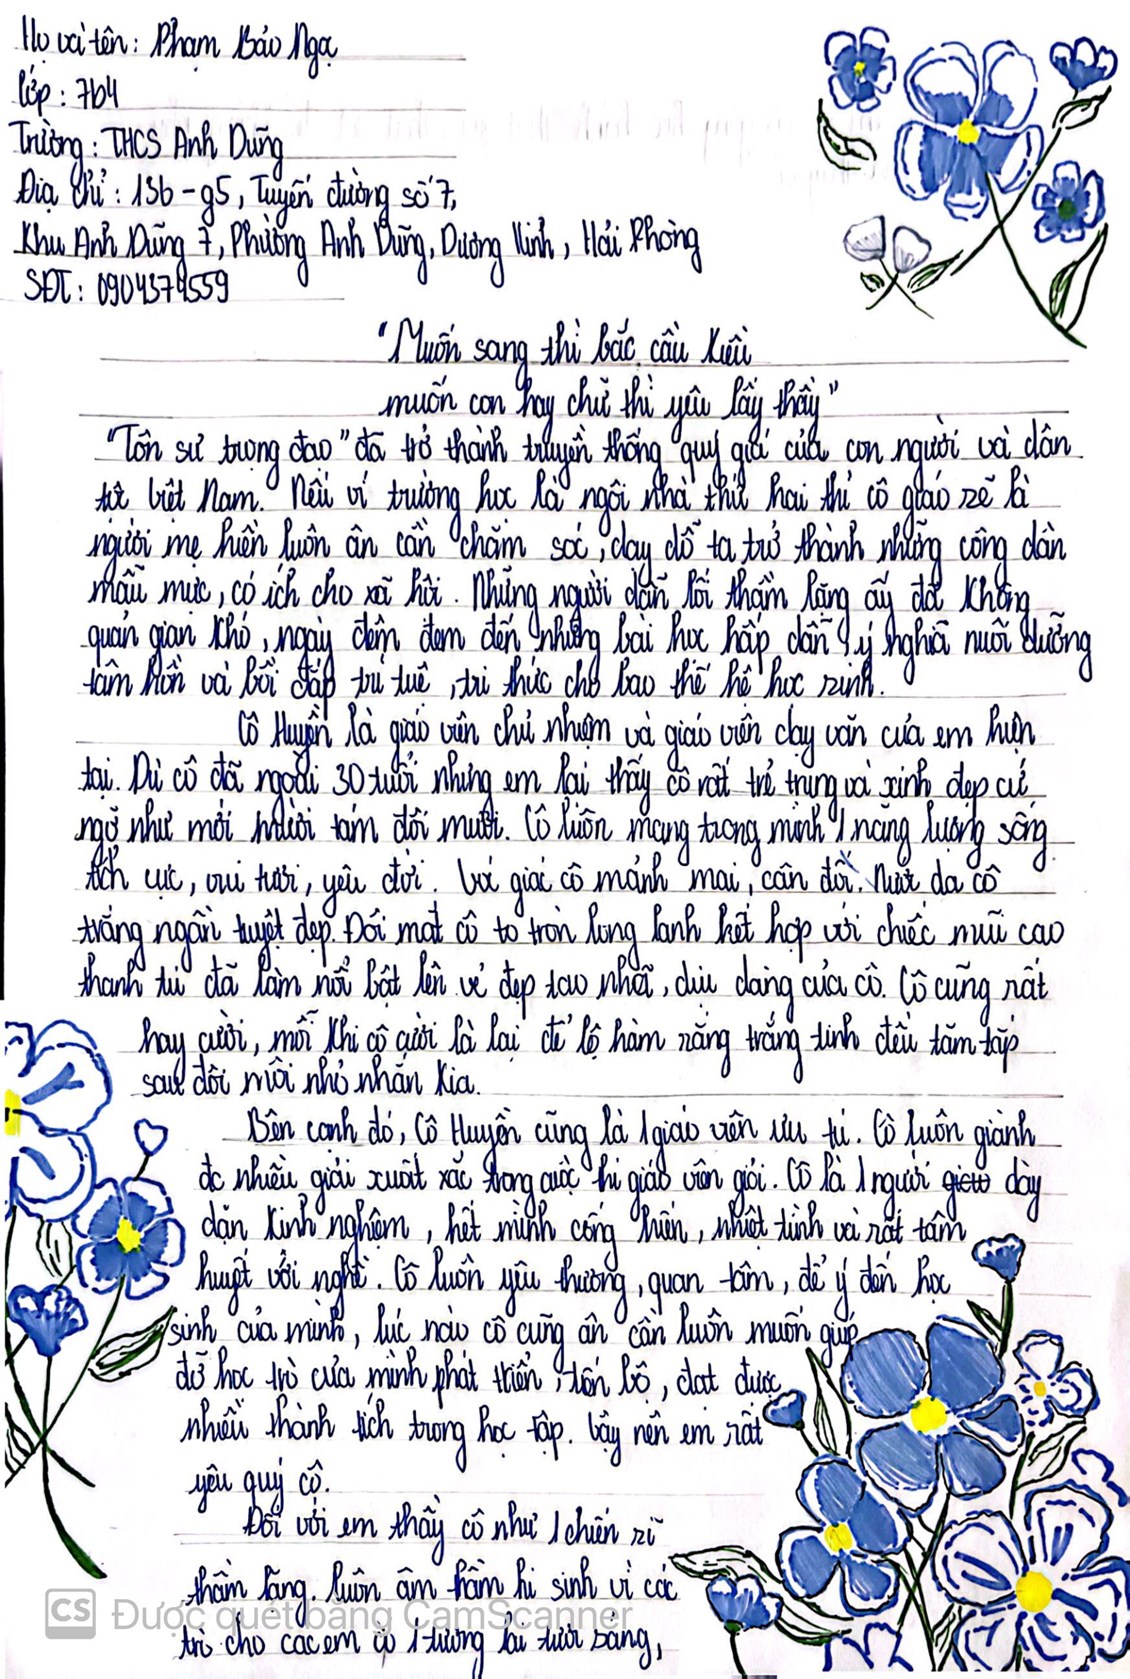 Họ và tên: Phạm Bảo Ngọc
lớp: 7b4
Trường: THCS Anh Dũng
Địa chỉ: 13b - g5, Tuyến đường số 7,
Khu Anh Dũng 7, Phường Anh Dũng, Dương Kinh, Hải Phòng
SĐT: 0904379559
"Muốn sang thì bắc cầu Kiều
muốn con hay chữ thì yêu lấy thầy"
"Tôn sư trọng đạo" đã trở thành truyền thống quý giá của con người và dân
tộc Việt Nam. Nếu ví trường học là ngôi nhà thứ hai thì cô giáo sẽ là
người mẹ hiền luôn ân cần chăm sóc, dạy dỗ ta trở thành những công dân
mẫu mực, có ích cho xã hội. Những người dẫn lối thầm lặng ấy đã không
quản gian khó, ngày đêm đem đến những bài học hấp dẫn, ý nghĩa nuôi dưỡng
tâm hồn và bồi đắp trí tuệ, tri thức cho bao thế hệ học sinh.
Cô Huyền là giáo viên chủ nhiệm và giáo viên dạy văn của em hiện
tại. Dù cô đã ngoài 30 tuổi nhưng em lại thấy cô rất trẻ trung và xinh đẹp cứ
ngỡ như mới mười tám đôi mươi. Cô luôn mang trong mình 1 năng lượng sống
tích cực, vui tươi, yêu đời. Vóc giác cô mảnh mai, cân đối. Nước da cô
trắng ngần tuyệt đẹp. Đôi mắt cô to tròn long lanh kết hợp với chiếc mũi cao
thanh tú đã làm nổi bật lên vẻ đẹp tao nhã, dịu dàng của cô. Cô cũng rất
hay cười, mỗi khi cô cười là lại để lộ hàm răng trắng tinh đều tăm tắp
sau đôi môi nhỏ nhắn kia.
Bên cạnh đó, Cô Huyền cũng là 1 giáo viên ưu tú. Cô luôn giành
đc nhiều giải xuất xắc trong cuộc thi giáo viên giỏi. Cô là 1 người dày
dặn kinh nghiệm, hết mình cống hiến, nhiệt tình và rất tâm
huyết với nghề. Cô luôn yêu thương, quan tâm, để ý đến học
sinh của mình, lúc nào cô cũng ân cần luôn muốn giúp
đỡ học trò của mình phát triển, tiến bộ, đạt được
nhiều thành tích trong học tập. Vậy nên em rất
yêu quý cô.
Đối với em thầy cô như 1 chiến sĩ
thầm lặng. luôn âm thầm hi sinh vì các
trò cho các em có 1 tương lai tươi sáng,
CS Được quét bằng CamScanner